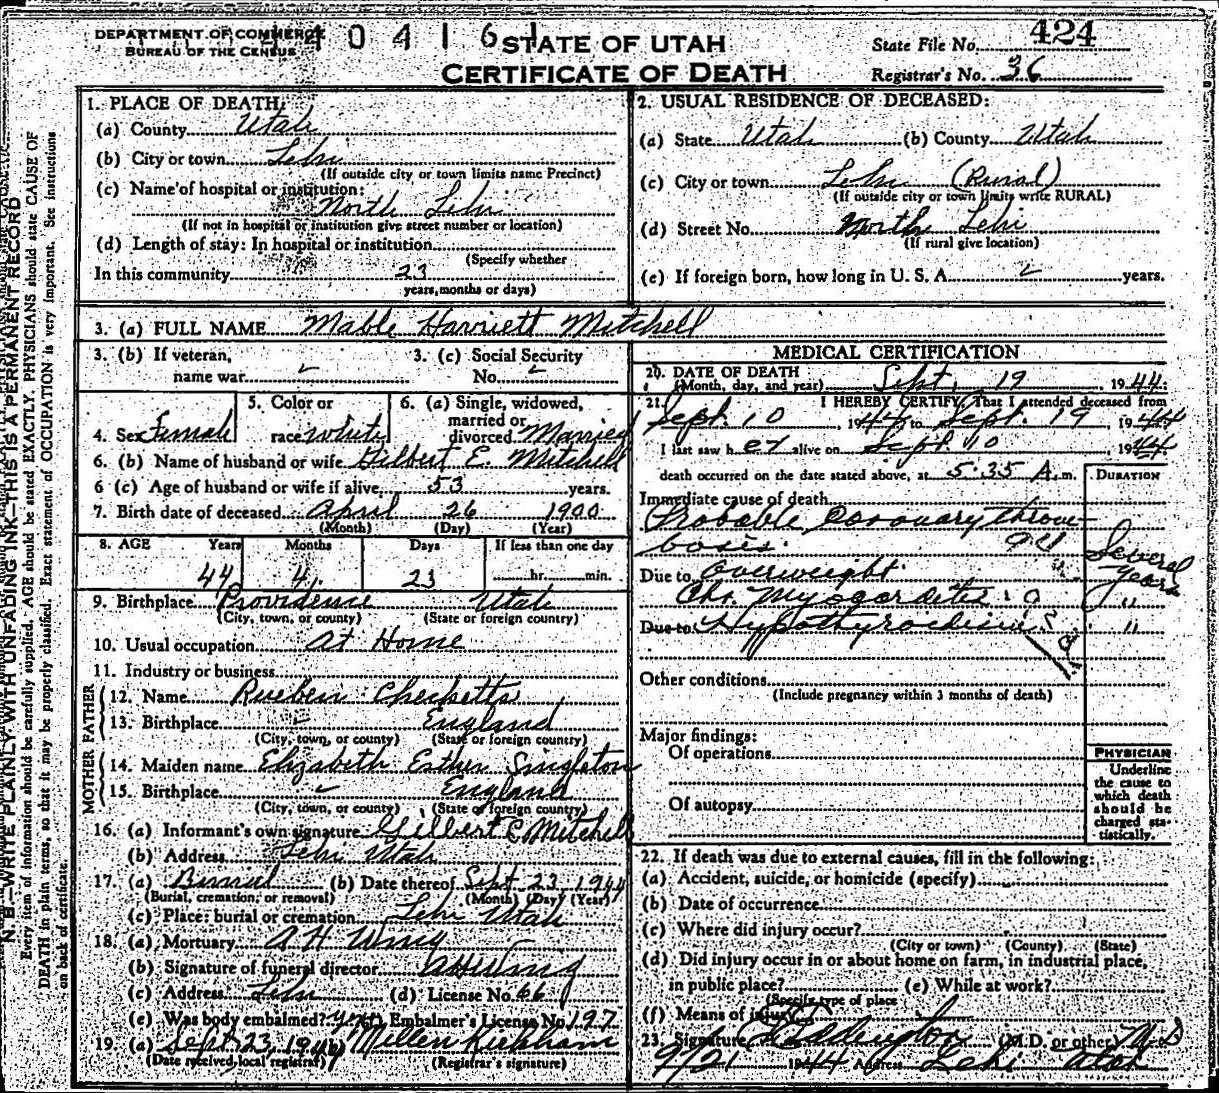 DEPARTMENT OF COMMERCE
BUREAU OF THE CENSUS
4 0 4 1 6 1
STATE OF UTAH
CERTIFICATE OF DEATH
State File No. 424
Registrar's No. 36
N. B.—WRITE PLAINLY WITH UNFADING INK—THIS IS A PERMANENT RECORD
Every item of information should be carefully supplied. AGE should be stated EXACTLY. PHYSICIANS should state CAUSE OF
DEATH in plain terms, so that it may be properly classified. Exact statement of OCCUPATION is very important. See instructions
on back of certificate.
1. PLACE OF DEATH:
(a) County Utah
(b) City or town Lehi
(If outside city or town limits name Precinct)
(c) Name of hospital or institution:
North Lehi
(If not in hospital or institution give street number or location)
(d) Length of stay: In hospital or institution
(Specify whether
In this community 23
years, months or days)
2. USUAL RESIDENCE OF DECEASED:
(a) State Utah (b) County Utah
(c) City or town Lehi (Rural)
(If outside city or town limits write RURAL)
(d) Street No. North Lehi
(If rural give location)
(e) If foreign born, how long in U. S. A. years.
3. (a) FULL NAME Mable Harriett Mitchell
3. (b) If veteran,
name war
3. (c) Social Security
No.
4. Sex Female
5. Color or
race white
6. (a) Single, widowed,
married or
divorced Married
6. (b) Name of husband or wife Gilbert E. Mitchell
6 (c) Age of husband or wife if alive, 53 years.
7. Birth date of deceased April 26 1900
(Month) (Day) (Year)
8. AGE Years Months Days If less than one day
44 4 23 hr. min.
9. Birthplace Providence Utah
(City, town, or county) (State or foreign country)
10. Usual occupation At Home
11. Industry or business
FATHER
12. Name Rueben Checketts
13. Birthplace England
(City, town, or county) (State or foreign country)
MOTHER
14. Maiden name Elizabeth Esther Singleton
15. Birthplace England
(City, town, or county) (State or foreign country)
16. (a) Informant's own signature Gilbert E. Mitchell
(b) Address Lehi Utah
17. (a) Burial (b) Date thereof Sept 23 1944
(Burial, cremation, or removal) (Month) (Day) (Year)
(c) Place: burial or cremation Lehi Utah
18. (a) Mortuary A H Wing
(b) Signature of funeral director A H Wing
(c) Address Lehi (d) License No. 66
(e) Was body embalmed? yes (f) Embalmer's License No. 197
19. (a) Sept 23, 1944 (b) Millen Kirkham
(Date received local registrar) (Registrar's signature)
MEDICAL CERTIFICATION
20. DATE OF DEATH
(Month, day, and year) Sept. 19 1944
21. I HEREBY CERTIFY, That I attended deceased from
Sept. 10, 1944 to Sept. 19 1944
I last saw her alive on Sept 10 1944
death occurred on the date stated above, at 5:35 A. m.
DURATION
Immediate cause of death
Probable Coronary throm-
bosis.
Due to Overweight. Several years
Chr. Myocarditis "
Due to Hypothyroidism "
Other conditions
(Include pregnancy within 3 months of death)
Major findings:
Of operations
Of autopsy
PHYSICIAN
Underline
the cause to
which death
should be
charged sta-
tistically.
22. If death was due to external causes, fill in the following:
(a) Accident, suicide, or homicide (specify)
(b) Date of occurrence
(c) Where did injury occur?
(City or town) (County) (State)
(d) Did injury occur in or about home on farm, in industrial place,
in public place? (e) While at work?
(Specify type of place
(f) Means of injury
23. Signature Eddington (M.D. or other) M.D
9/21 1944 Address Lehi Utah